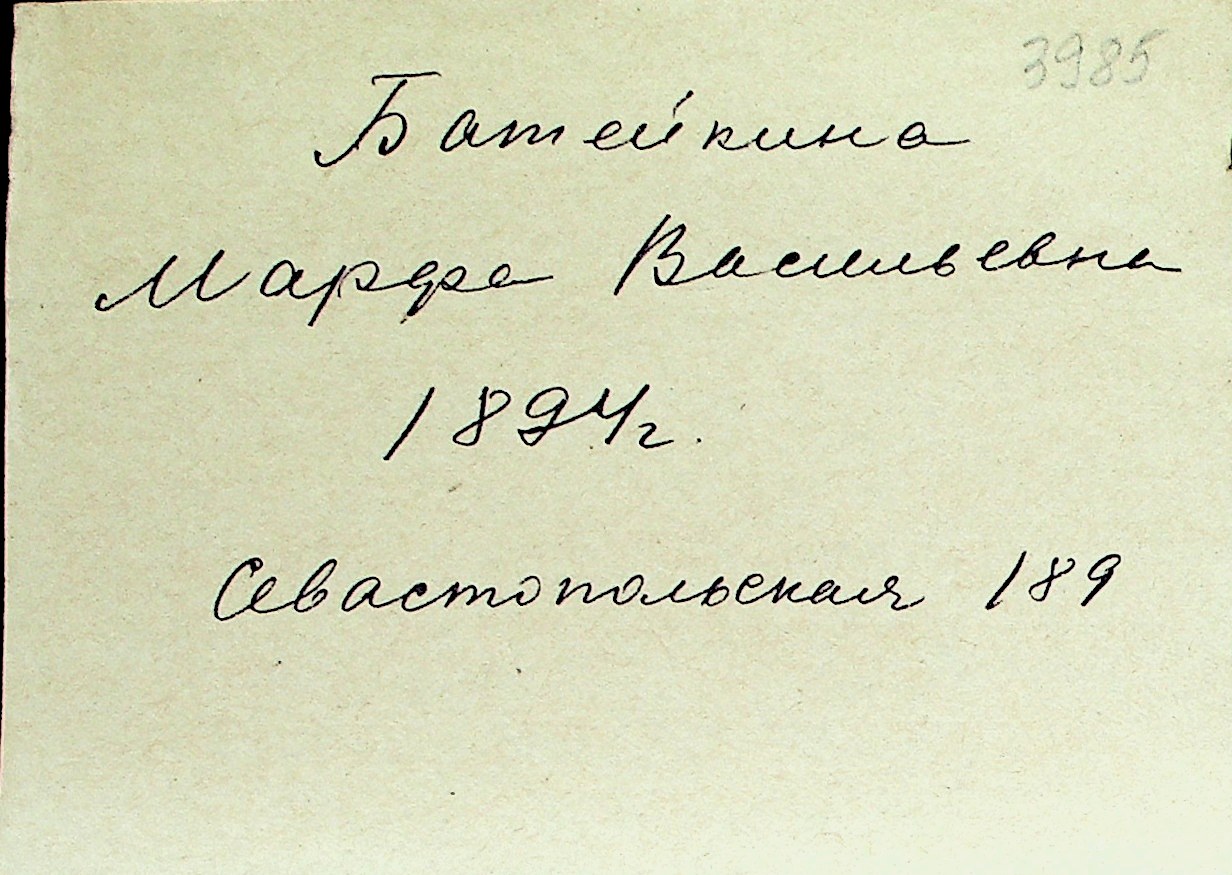 3985
Батейкина
Марфа Васильевна
1894г.
Севастопольская 189